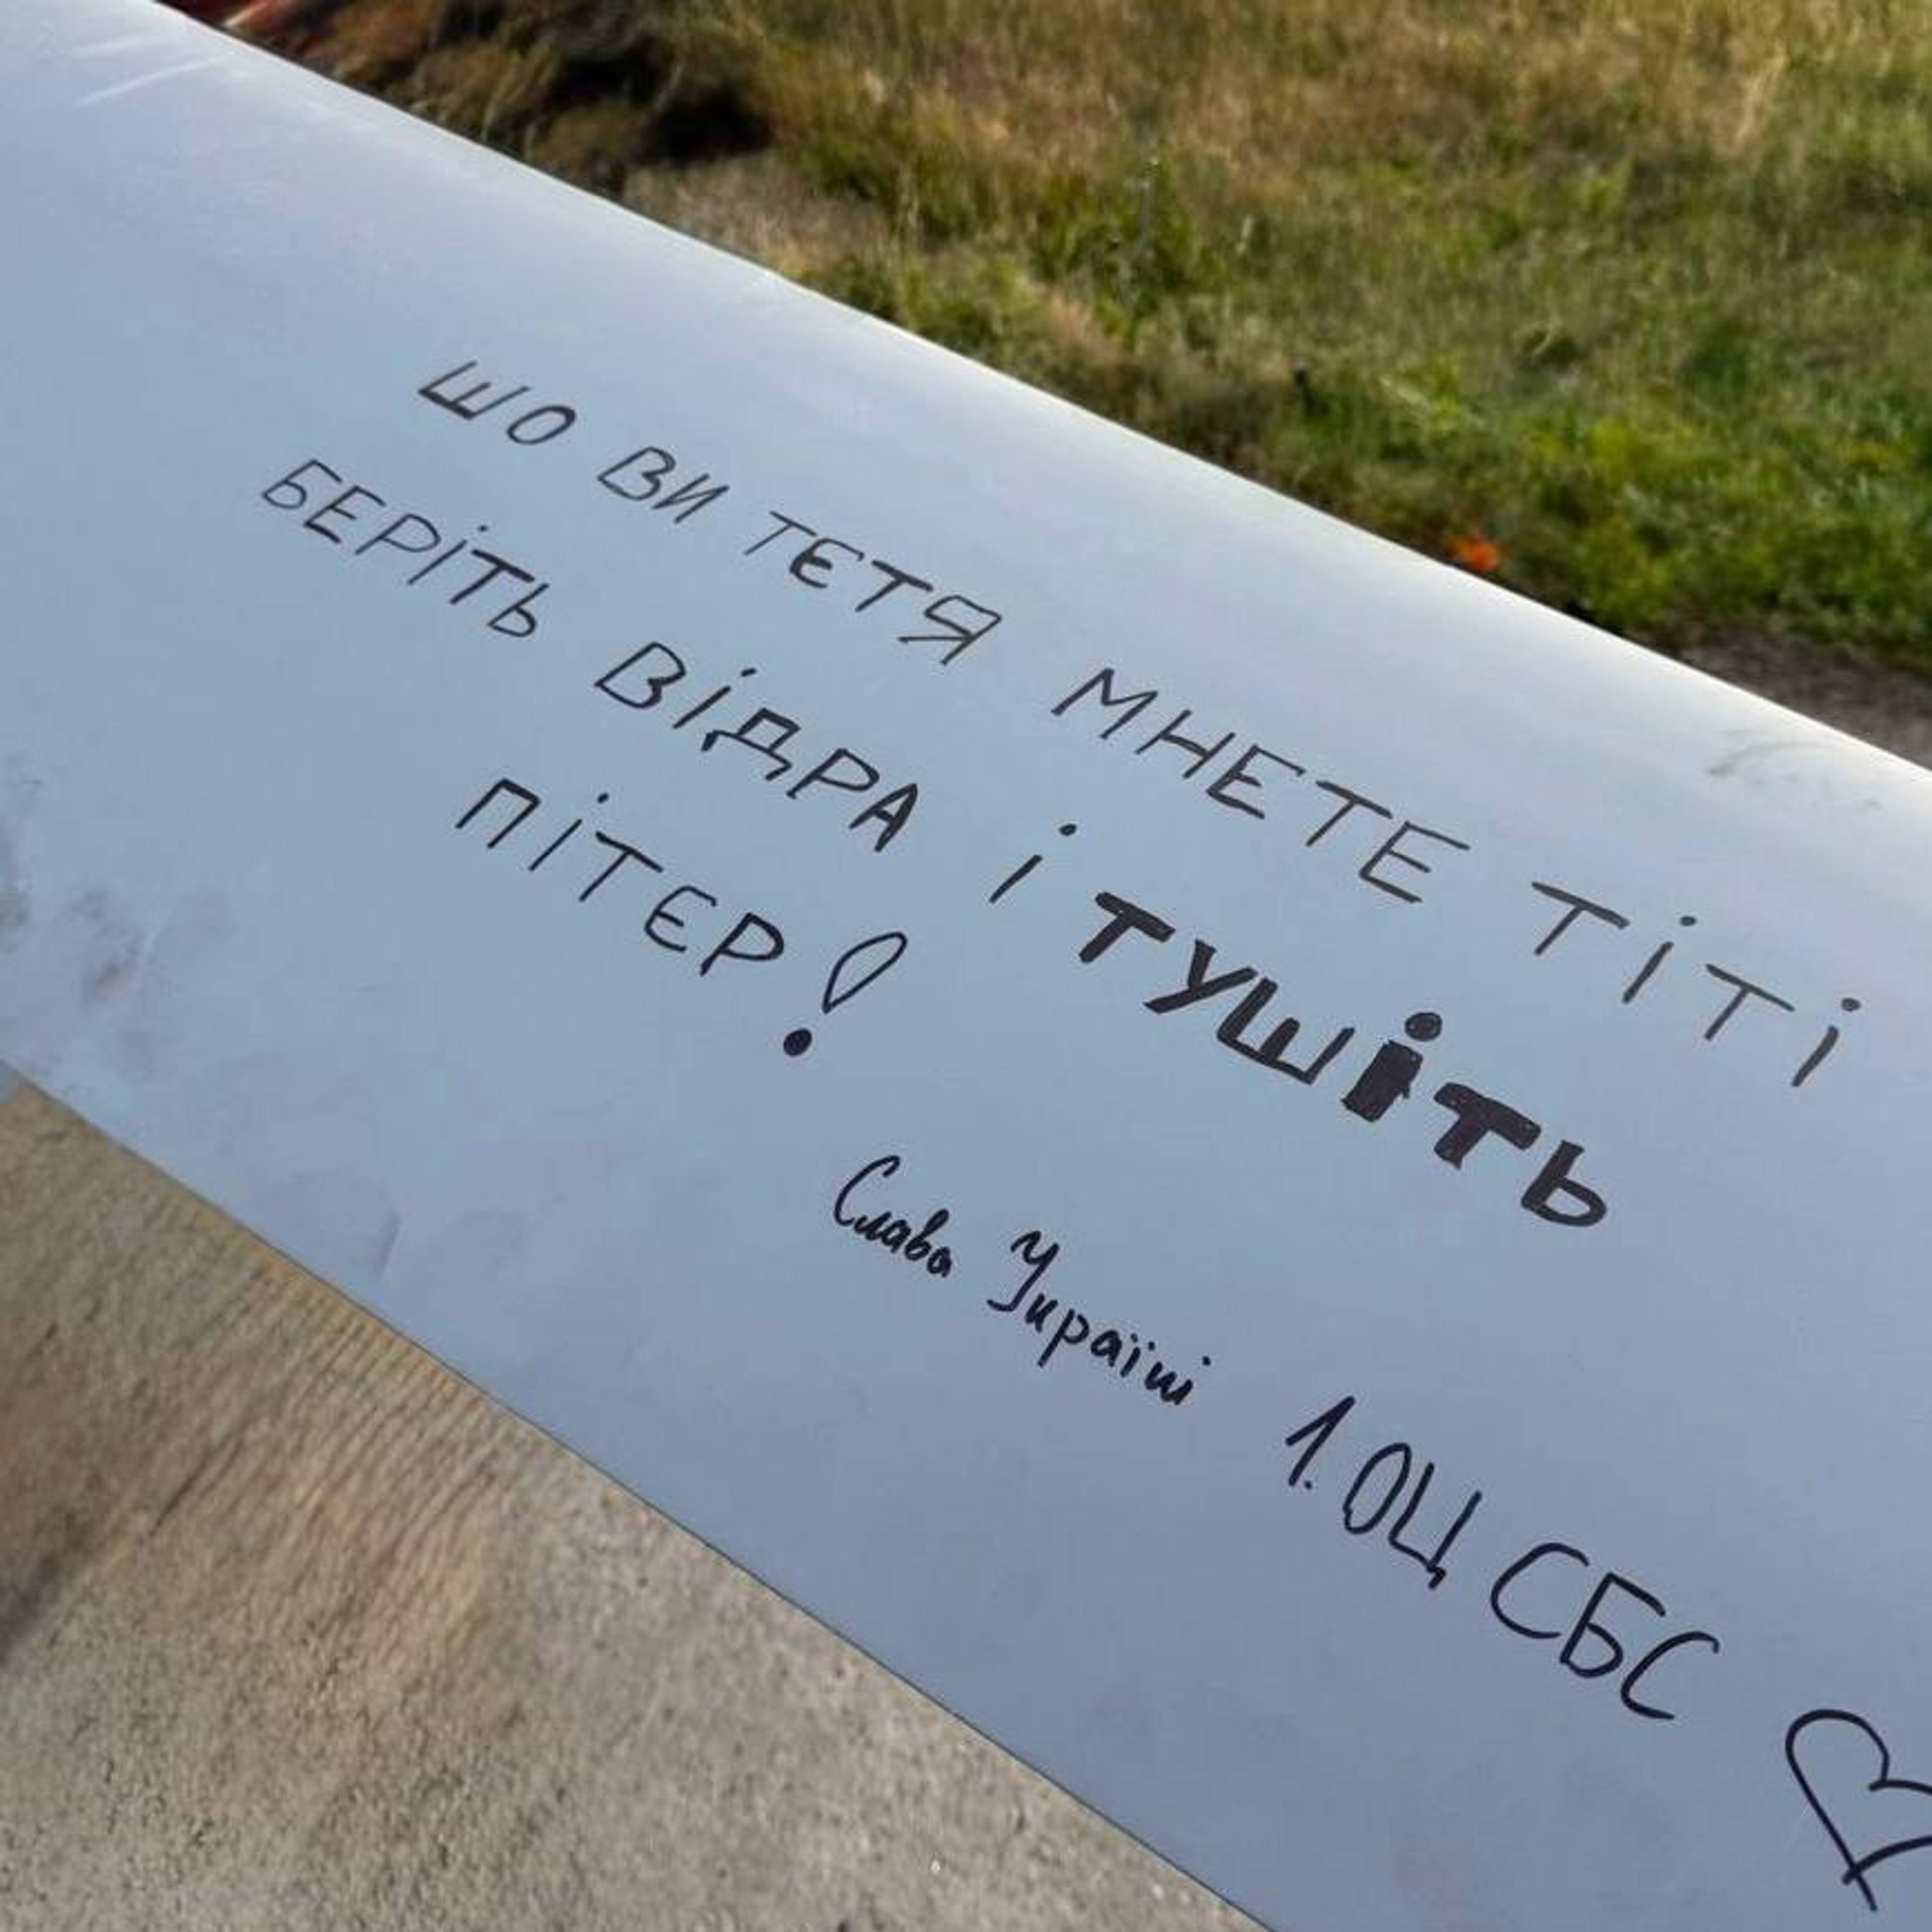 ШО ВИ ТЄТЯ МНЕТЕ ТІТІ
БЕРІТЬ ВІДРА І ТУШІТЬ
ПІТЄР!
Слава Україні 1.ОЦ СБС